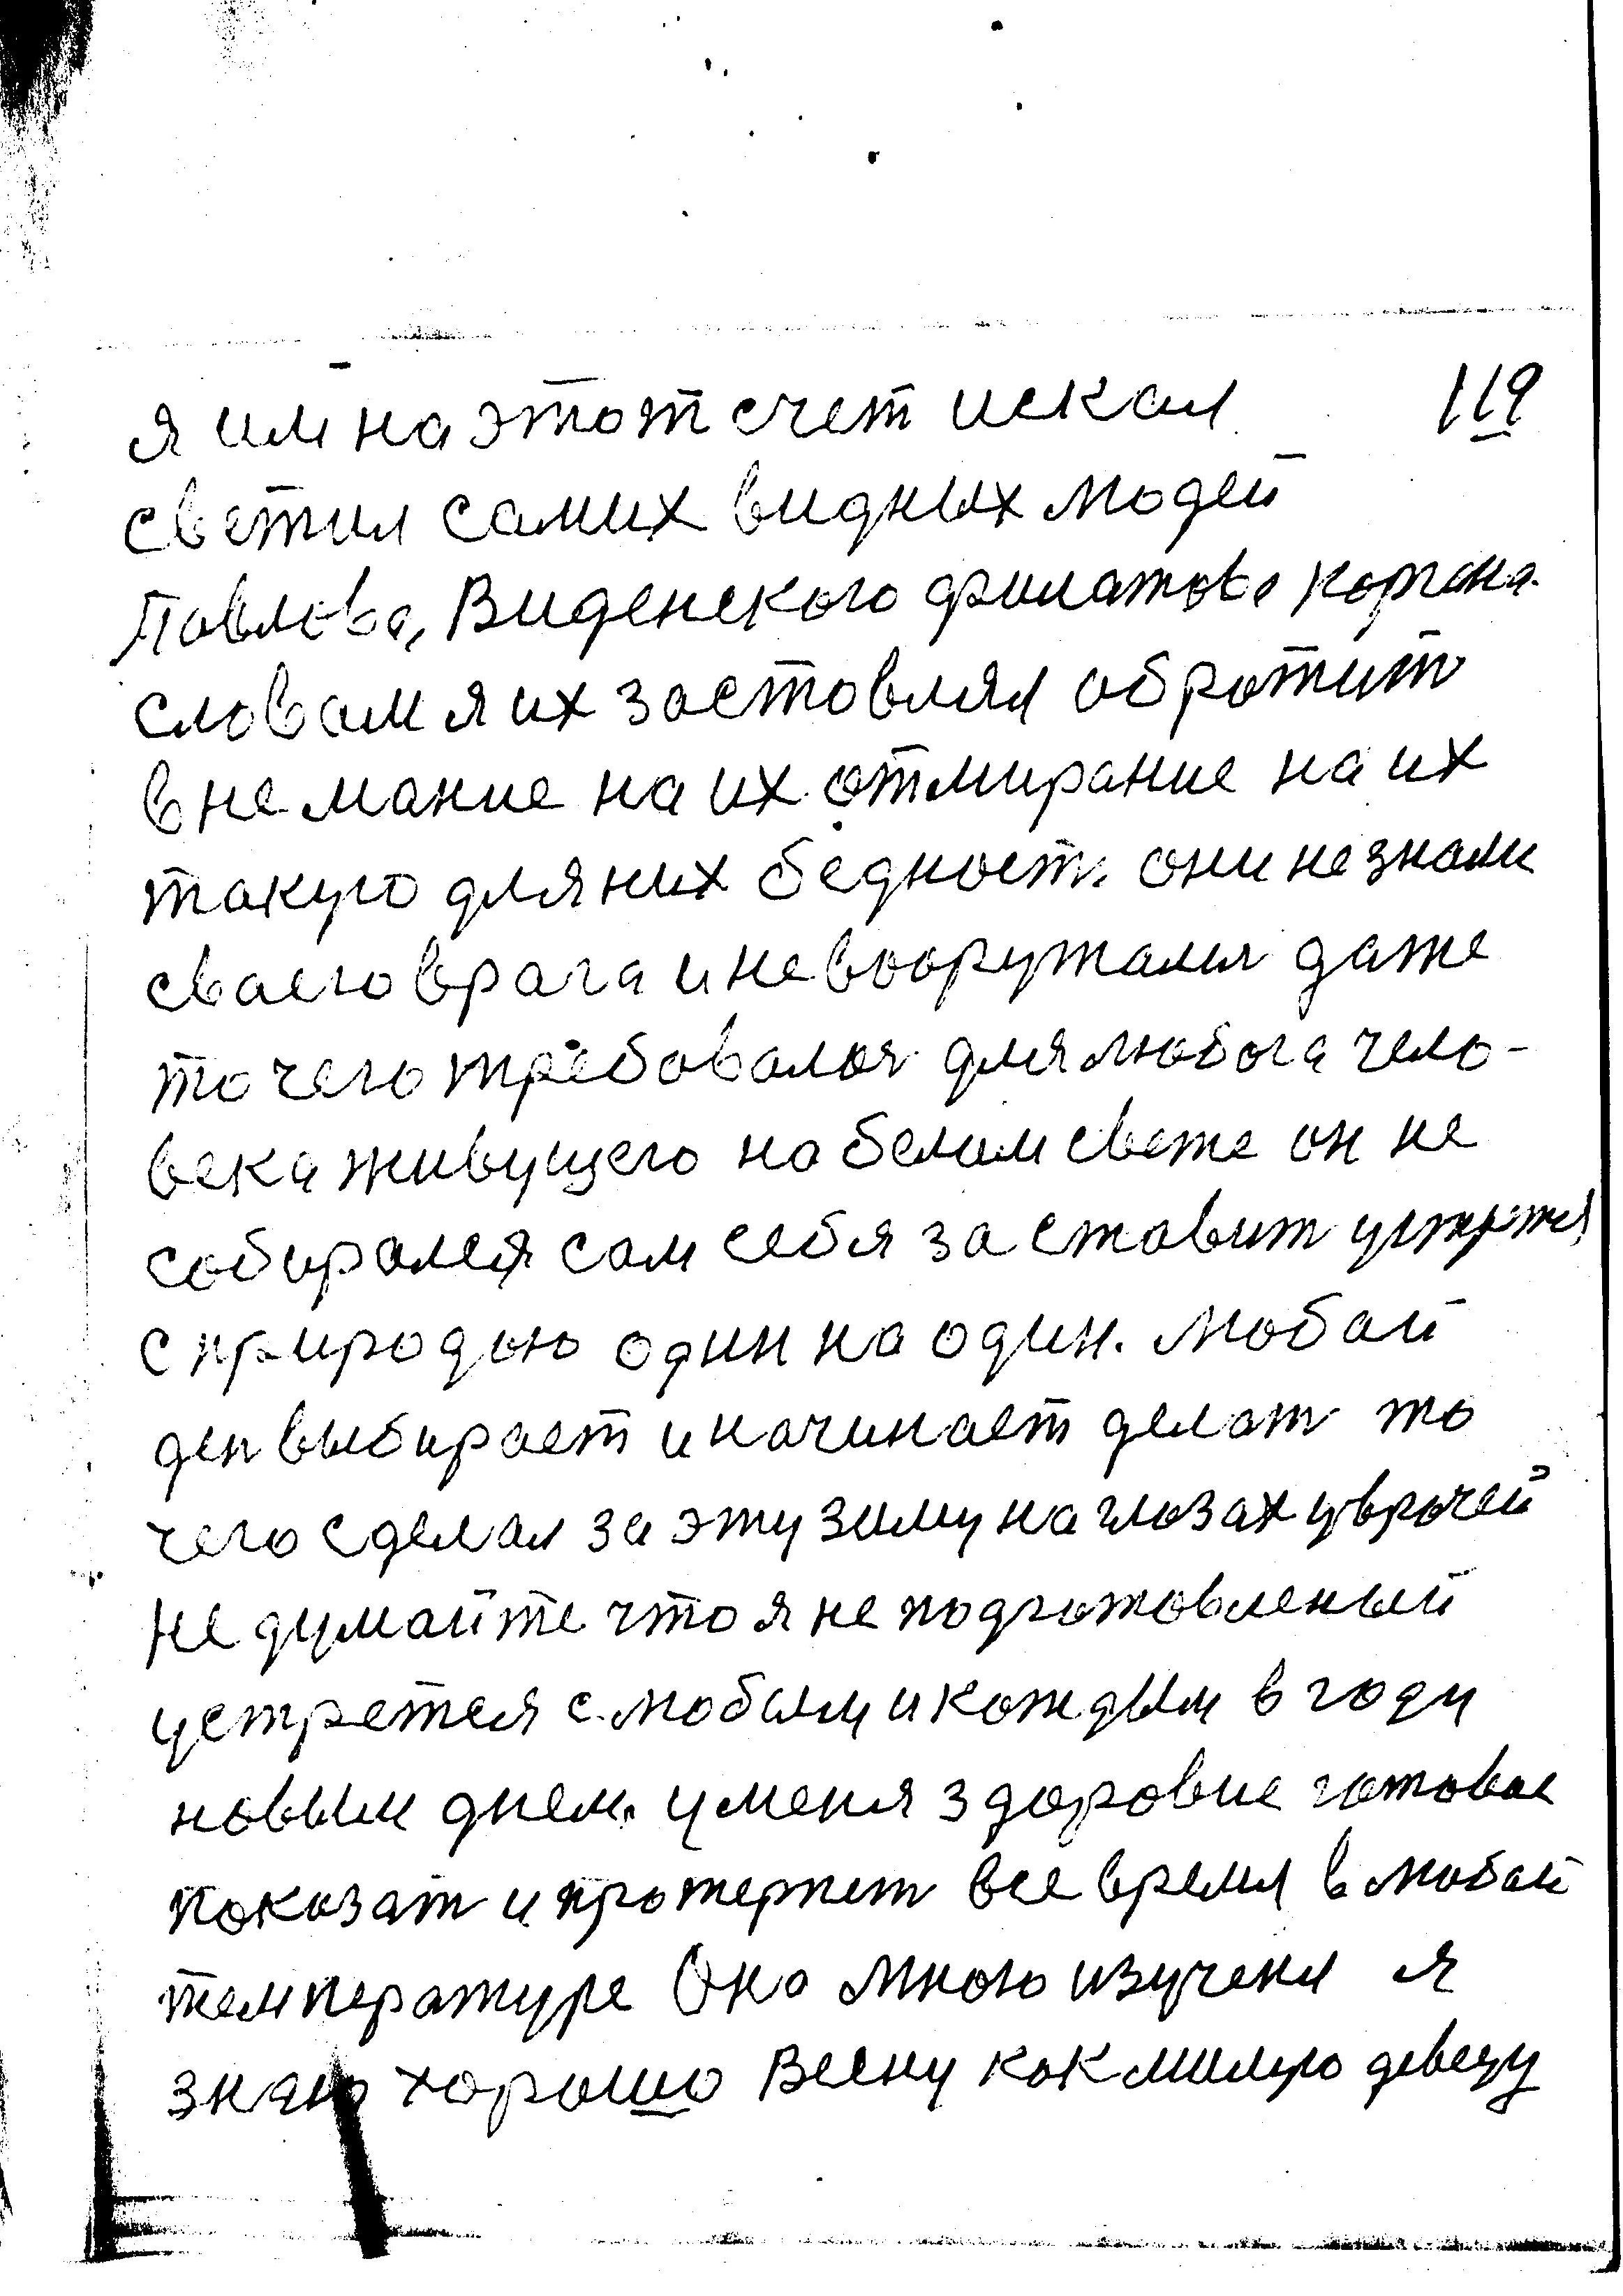 я им на этот счет искал 119
светил самих видных людей
Павлова, Виденского филатова Коргана.
словам я их заставлял обротит
внемание на их отмирание на их
такую для них бедност. они не знали
сваего врага и не вооружалися даже
то чего требовалося для любога чело-
века живущего на белам свете он не
собирался сам себя заставит
с природою один на один. любой
ден выбирает и начинает делат то
чего сделал за эту зиму на глазах уврачей
Не думайте что я не подготовленый
устретея с любым и каждым в году
новым днем. у меня здоровие готовае
показат и протерпет все время в любой
температуре Оно мною изучени я
знаю хорошо Весну как милую девецу